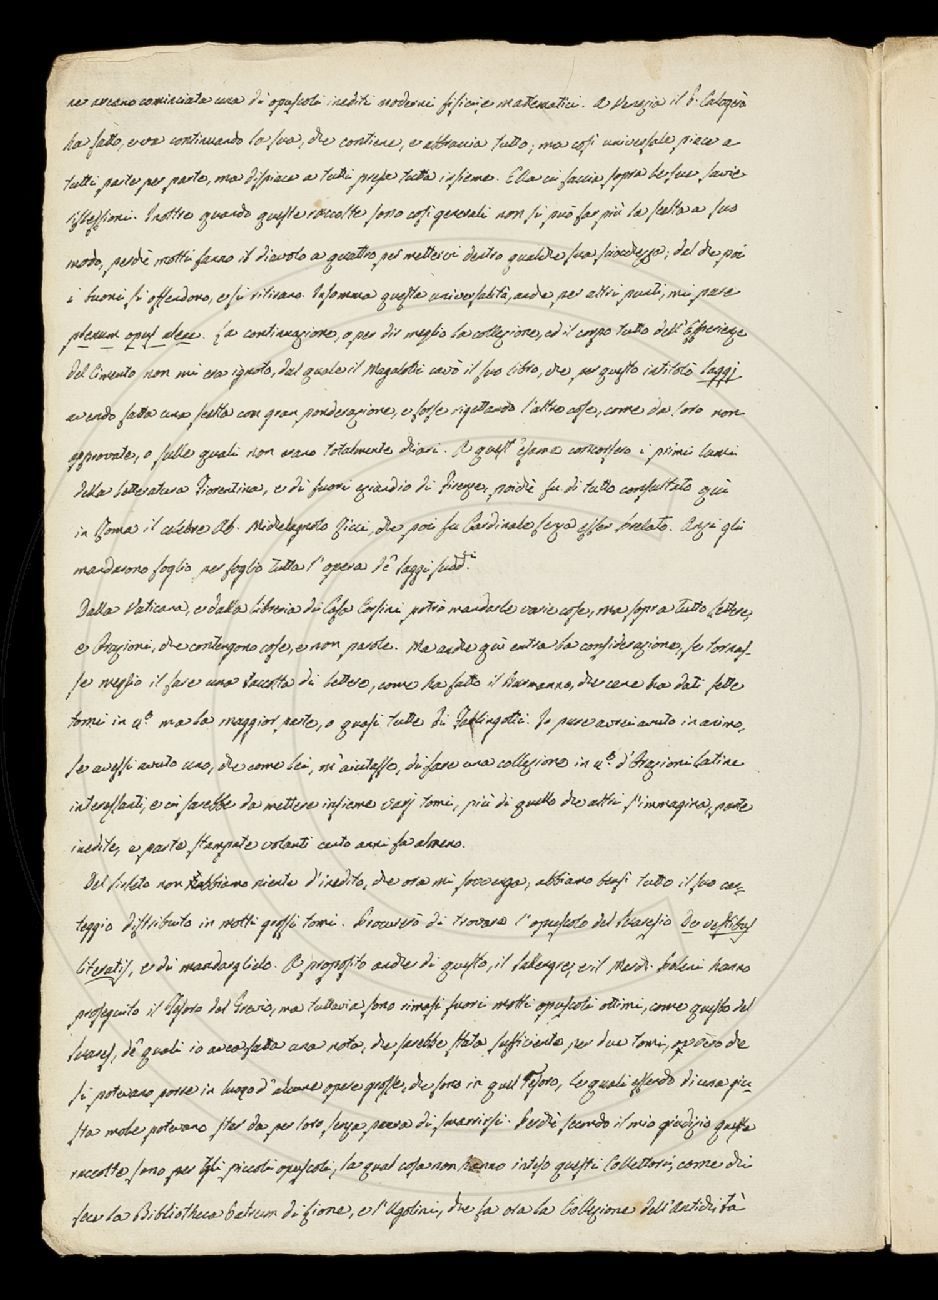 ne aveano cominciata una di opuscoli inediti moderni fisici, e mattematici. A Venezia il P. Calogerà
ha fatto, e va continuando la sua, che contiene, e abbraccia tutto; ma così universale piace a
tutti parte per parte, ma dispiace a tutti presa tutta insieme. Ella ci faccia sopra le sue savie
riflessioni. Inoltre quando queste raccolte sono così generali non si può far più la scelta a suo
modo, perchè molti fanno il diavolo a quattro per metterci dentro qualche sua; del che poi
i buoni si offendono, e si ritirano. Insomma questa universalità, anche per altri punti, mi pare
plenum opus aleae. La continuazione, o per dir meglio la collezione, ed il corpo tutto dell'Esperienze
del Cimento non mi era ignoto, dal quale il Magalotti cavò il suo libro, che per questo intitolò Saggi
avendo fatta una scelta con gran ponderazione, e forse rigettando l'altre cose, come da loro non
approvate, o sulle quali non erano totalmente chiari. A quest'esame concorsero i primi lumi
della letteratura Fiorentina, e di fuori eziandio di Firenze, poichè fu di tutto consultato quì
in Roma il celebre Ab. Michelagnolo Ricci, che poi fu Cardinale senza esser Prelato. Anzi gli
mandarono foglio per foglio tutta l'opera de' Saggi
Dalla Vaticana, e dalla Libreria di Casa Corsini potrò mandarle varie cose, ma sopra tutto Lettere,
e Orazioni, che contengono cose, e non parole. Ma anche quì entra la considerazione, se tornas-
se meglio il fare una Raccolta di lettere, come ha fatto il Burmanno, che cene ha dati sette
tomi in 4.º ma la maggior parte, o quasi tutte di. Io pure avrei avuto in animo,
se avessi avuto uno, che come lei, m'aiutasse, di fare una collezione in 4.º d'Orazioni latine
interessanti, e ci sarebbe da mettere insieme varj tomi, più di quello che altri s'immagina, parte
inedite, e parte stampate volanti cento anni fa almeno.
Del Sirleto non abbiamo niente d'inedito, che ora mi sovvenga; abbiamo bensì tutto il suo car-
teggio distribuito in molti grossi tomi. Procurerò di trovare l'opuscolo del Suaresio De vestibus
literatis, e di mandarglielo. A proposito anche di questo, il Salengre, e il March. Poleni hanno
proseguito il Tesoro del Grevio, ma tuttavia sono rimasi fuori molti opuscoli ottimi, come questo del
Suares, de' quali io avea fatta una nota, che sarebbe stata sufficiente per due tomi, ovvero che
si potevano porre in luogo d'alcune opere grosse, che sono in quel Tesoro, le quali essendo di una giu-
sta mole potevano star da per loro senza paura di smarrirsi. Perchè secondo il mio giudizio queste
raccolte sono per gli piccoli opuscoli, la qual cosa non hanno inteso questi Collettori, come chi
fece la Bibliotheca Patrum di Lione, e l'Ugolini, che fa ora la Collezione dell'Antichità